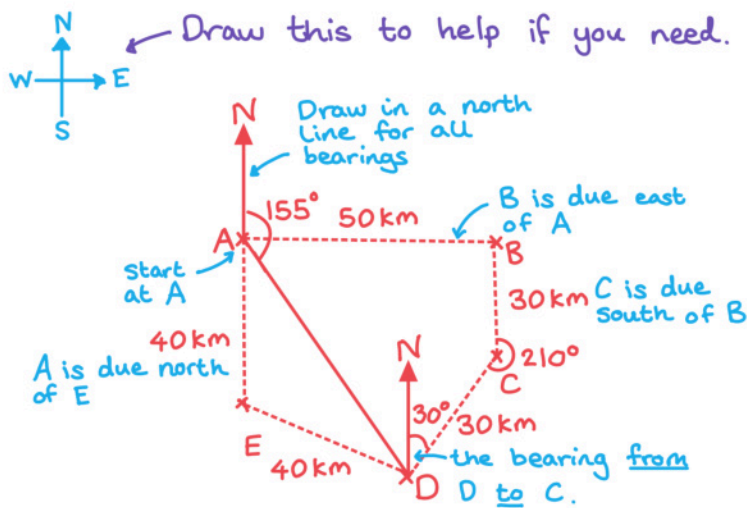 N
Draw this to help if you need.
W E
S
N
Draw in a north
line for all
bearings
155°
50km
B is due east
of A
A
B
start
at A
30km
C is due
south of B
40km
N
210°
A is due north
of E
C
30°
30km
E
40km
the bearing from
D
D to C.